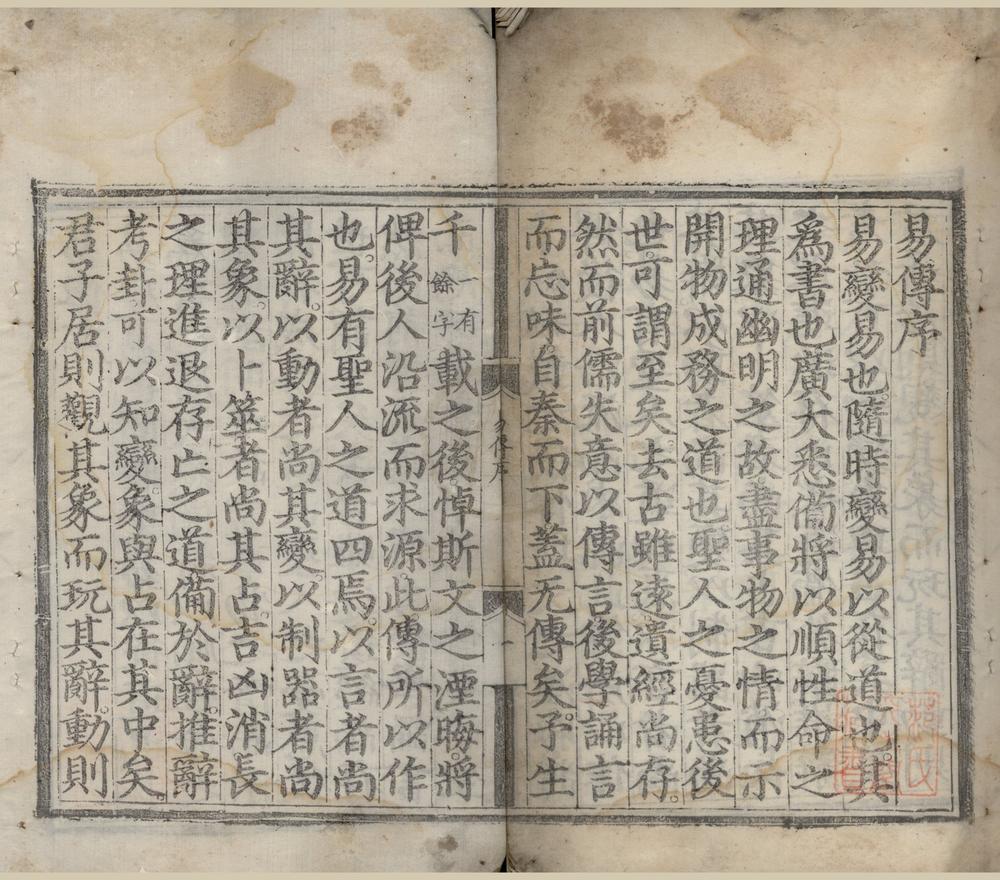 易傳序
易變易也隨時變易以從道也其
爲書也廣大悉備將以順性命之
理通幽明之故盡事物之情而示
開物成務之道也聖人之憂患後
世可謂至矣去古雖遠遺經尚存
然而前儒失意以傳言後學誦言
而忘味自秦而下蓋无傳矣予生
千一有餘字載之後悼斯文之湮晦將
俾後人沿流而求源此傳所以作
也易有聖人之道四焉以言者尚
其辭以動者尚其變以制器者尚
其象以卜筮者尚其占吉凶消長
之理進退存亡之道備於辭推辭
考卦可以知變象與占在其中矣
君子居則觀其象而玩其辭動則
易傳序
一